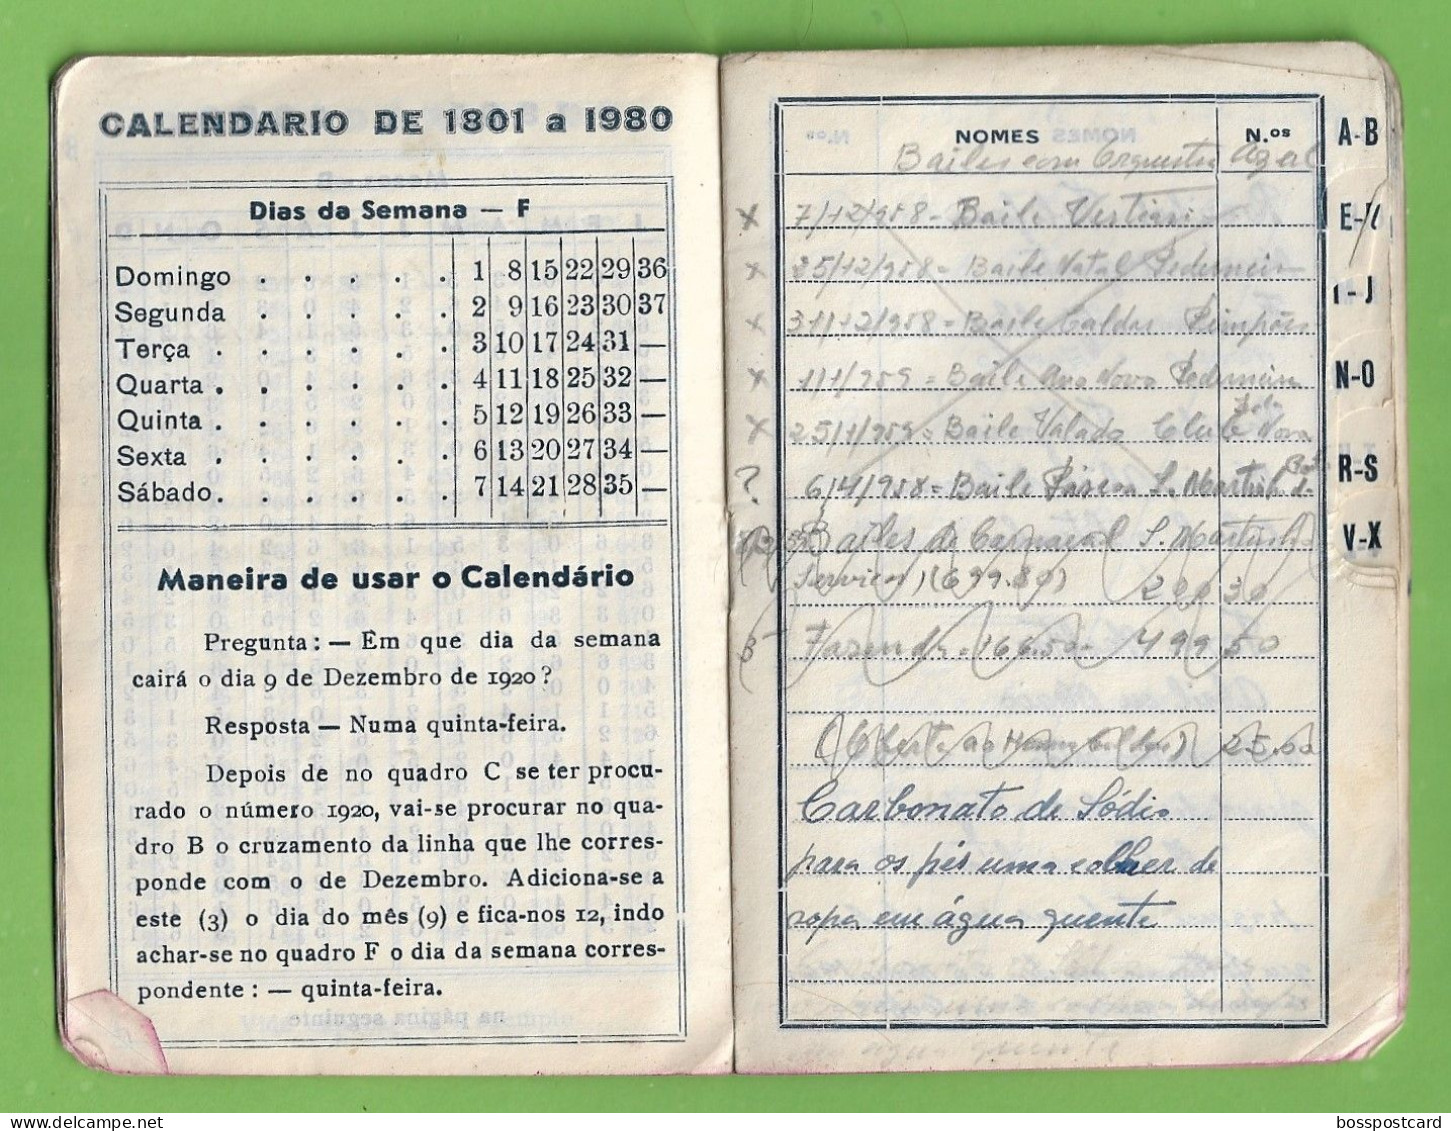 CALENDARIO DE 1801 a 1980
Dias da Semana — F
Domingo . . . . . 1 8 15 22 29 36
Segunda . . . . . 2 9 16 23 30 37
Terça . . . . . . 3 10 17 24 31 —
Quarta . . . . . . 4 11 18 25 32 —
Quinta . . . . . . 5 12 19 26 33 —
Sexta . . . . . . 6 13 20 27 34 —
Sábado . . . . . . 7 14 21 28 35 —
Maneira de usar o Calendário
Pregunta: — Em que dia da semana
cairá o dia 9 de Dezembro de 1920?
Resposta — Numa quinta-feira.
Depois de no quadro C se ter procu-
rado o número 1920, vai-se procurar no qua-
dro B o cruzamento da linha que lhe corres-
ponde com o de Dezembro. Adiciona-se a
este (3) o dia do mês (9) e fica-nos 12, indo
achar-se no quadro F o dia da semana corres-
pondente: — quinta-feira.
NOMES N.os
Bailes com Orquestra
x 7/12/958 - Baile
x 25/12/958 - Baile Natal Pederneira
x 31/12/958 - Baile Caldas
x 1/1/959 = Baile Ano Novo Pederneira
x 25/1/959 = Baile Valado Club
? 6/4/958 = Baile Páscoa S. Martinho
Bailes de Carnaval S. Martinho
499.50
25.00
Carbonato de Sódio
para os pés uma colher de
sopa em água quente
A-B
I-J
N-O
R-S
V-X
bosspostcard